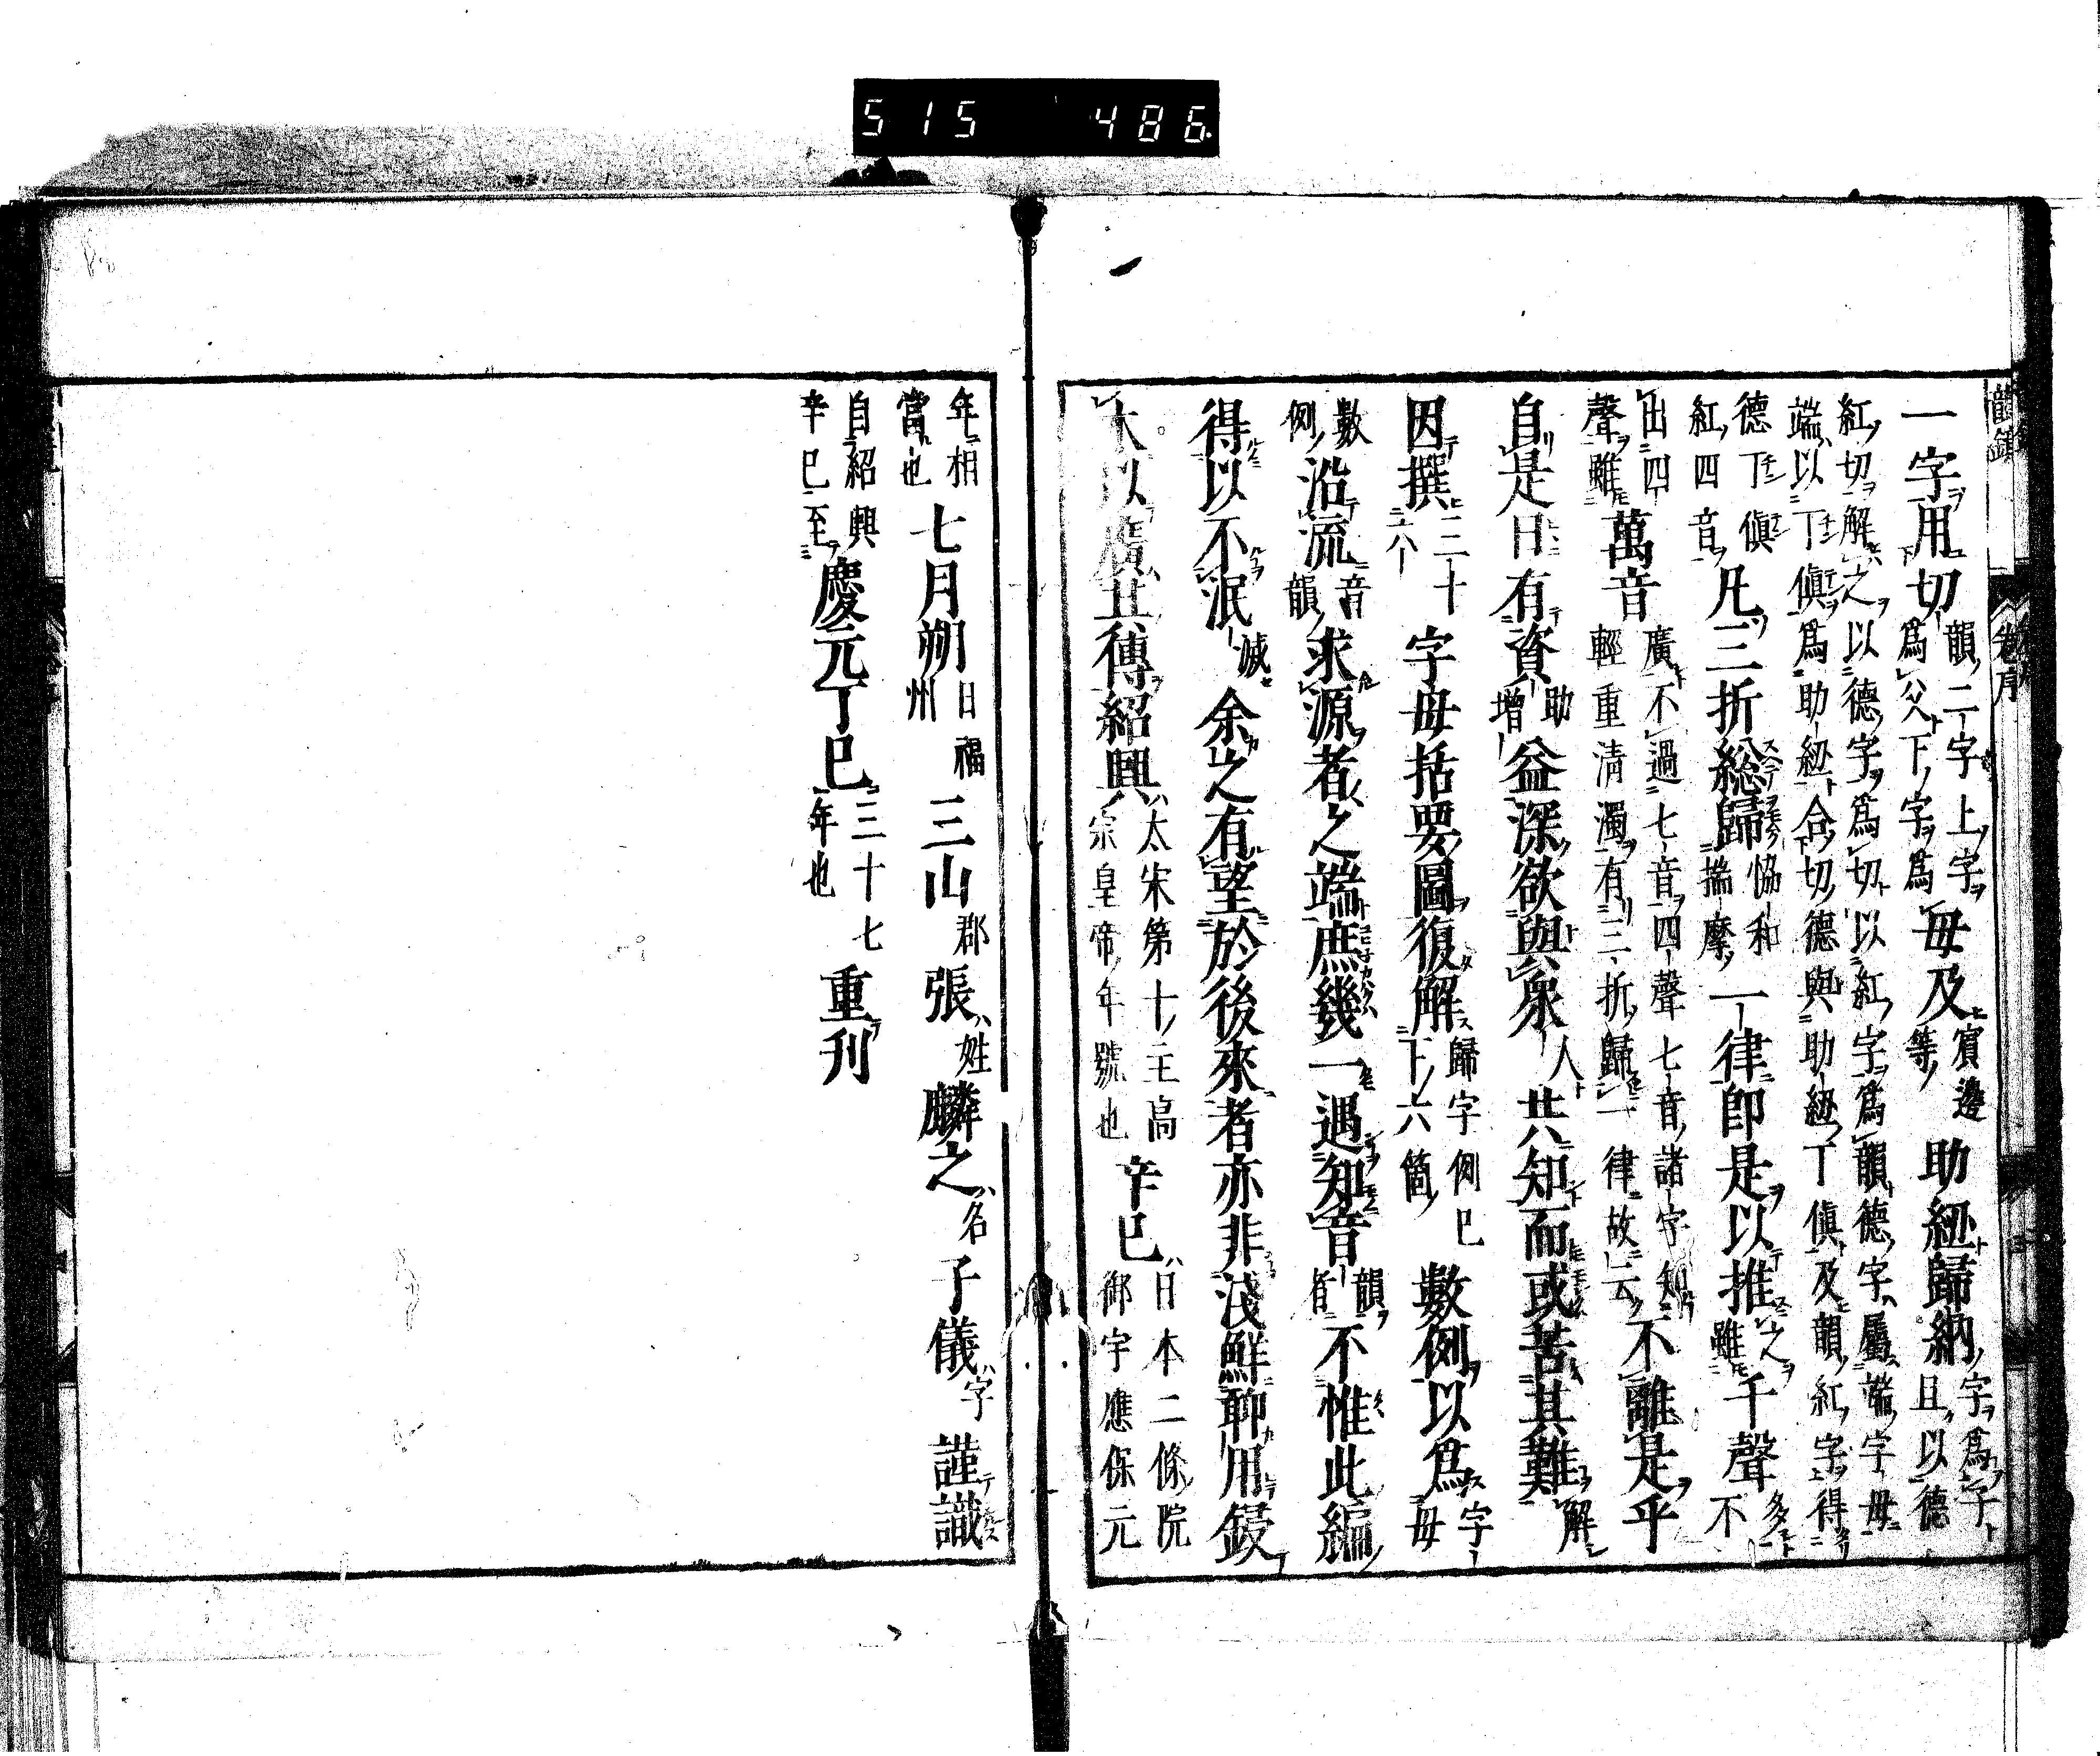 515 486.
韻鏡 序
一字用切韻二字上字爲父下字爲母及賓邊等助紐歸納字爲子且以德
紅切解之以德字爲切以紅字爲韻德字屬端字母
端以丁傎爲助紐合切德與助紐丁傎及韻紅字得
德丁傎紅四音凡三折総歸恊和揣摩一律即是以推之雖千聲多不
出四聲雖萬音廣不過七音四聲七音諸字知輕重清濁有三折歸一律故云不離是乎
自是日有資助增益深欲與衆人共知而或苦其難解
因撰三十六字母括要圖復解歸字例已下六箇數例以爲字母
數例沿流音韻求源者之端庶幾一遇知音韻者不惟此編
得以不泯滅余之有望於後來者亦非淺鮮聊用鋟
木以廣其傳紹興太宋第十主高宗皇帝年號也辛巳日本二條院御宇應保元
年相當也七月朔日福州三山郡張姓麟之名子儀字謹識
自紹興辛巳至慶元丁巳三十七年也重刊